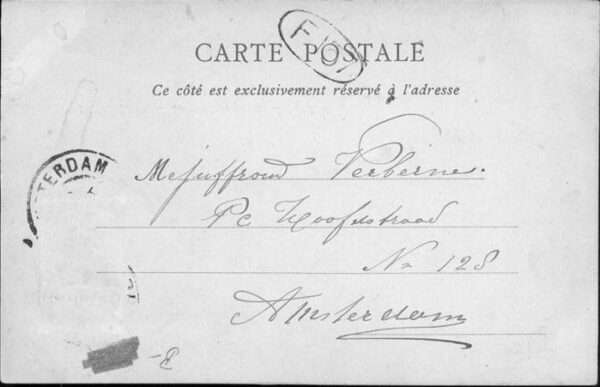 CARTE POSTALE
Ce côté est exclusivement réservé à l'adresse
TERDAM
Mejuffrouw Verberne.
Pc Hooftstraat
No 128
Amsterdam